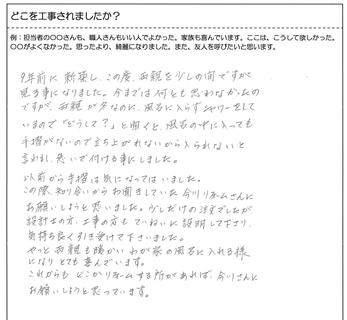 どこを工事されましたか？
例：担当者の〇〇さんも、職人さんもいい人でよかった。家族も喜んでいます。ここは、こうして欲しかった。
〇〇がよくなかった。思ったより、綺麗になりました。また、友人を呼びたいと思います。
9年前に新築し、この度、両親を少しの間ですが
見る事になりました。今までは何とも思わなかったの
ですが、両親が冬なのに、風呂に入らずシャワーをして
いるので「どうして？」と聞くと、風呂の中に入っても
手摺がないので立ち上がれないから入られないと
言われ、急いで付ける事にしました。
以前から手摺は気になってはいました。
この際、知り合いからお聞きしていた今川リフォームさんに
お願いしようと思いました。少しだけの注文でしたが
設計士の方、工事の方もていねいに説明して下さり、
気持ち良く引き受けて下さいました。
やっと両親も暖かいわが家の風呂に入れる様
になりとても喜んでいます。
これからもどこかリフォームする所があれば、今川さんに
お願いしようと思っています。